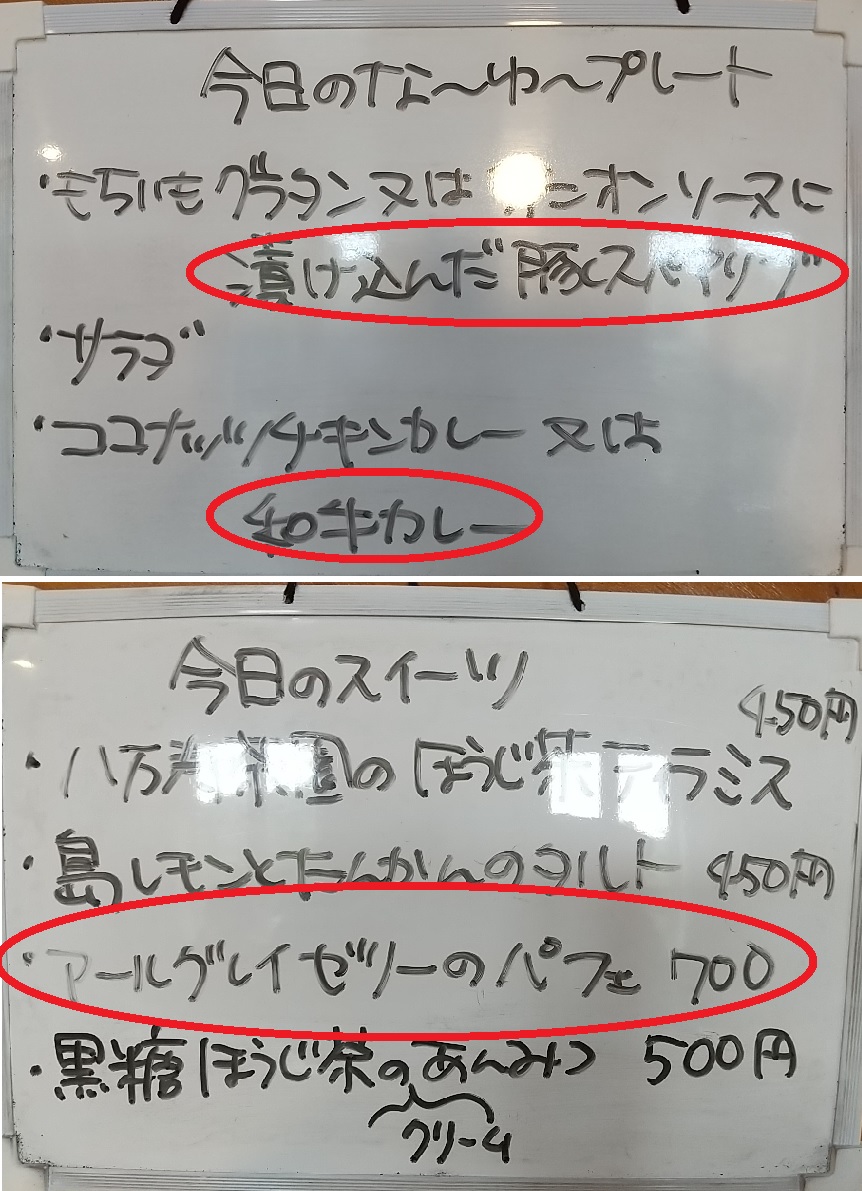 今日のな～ゆ～プレート
・もちいもグラタン又は オニオンソースに
漬け込んだ豚スペアリブ
・サラダ
・ココナッツチキンカレー又は
和牛カレー
今日のスイーツ
450円
・八万寿茶園のほうじ茶ティラミス
・島レモンとたんかんのタルト 450円
・アールグレイゼリーのパフェ 700
・黒糖ほうじ茶のあんみつ 500円
クリーム